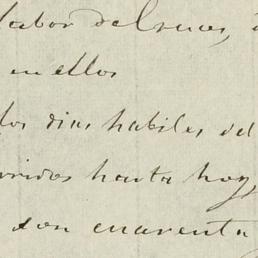 labor del
en ellos
los dias habiles del
rridos hasta hoy,
son cuarenta